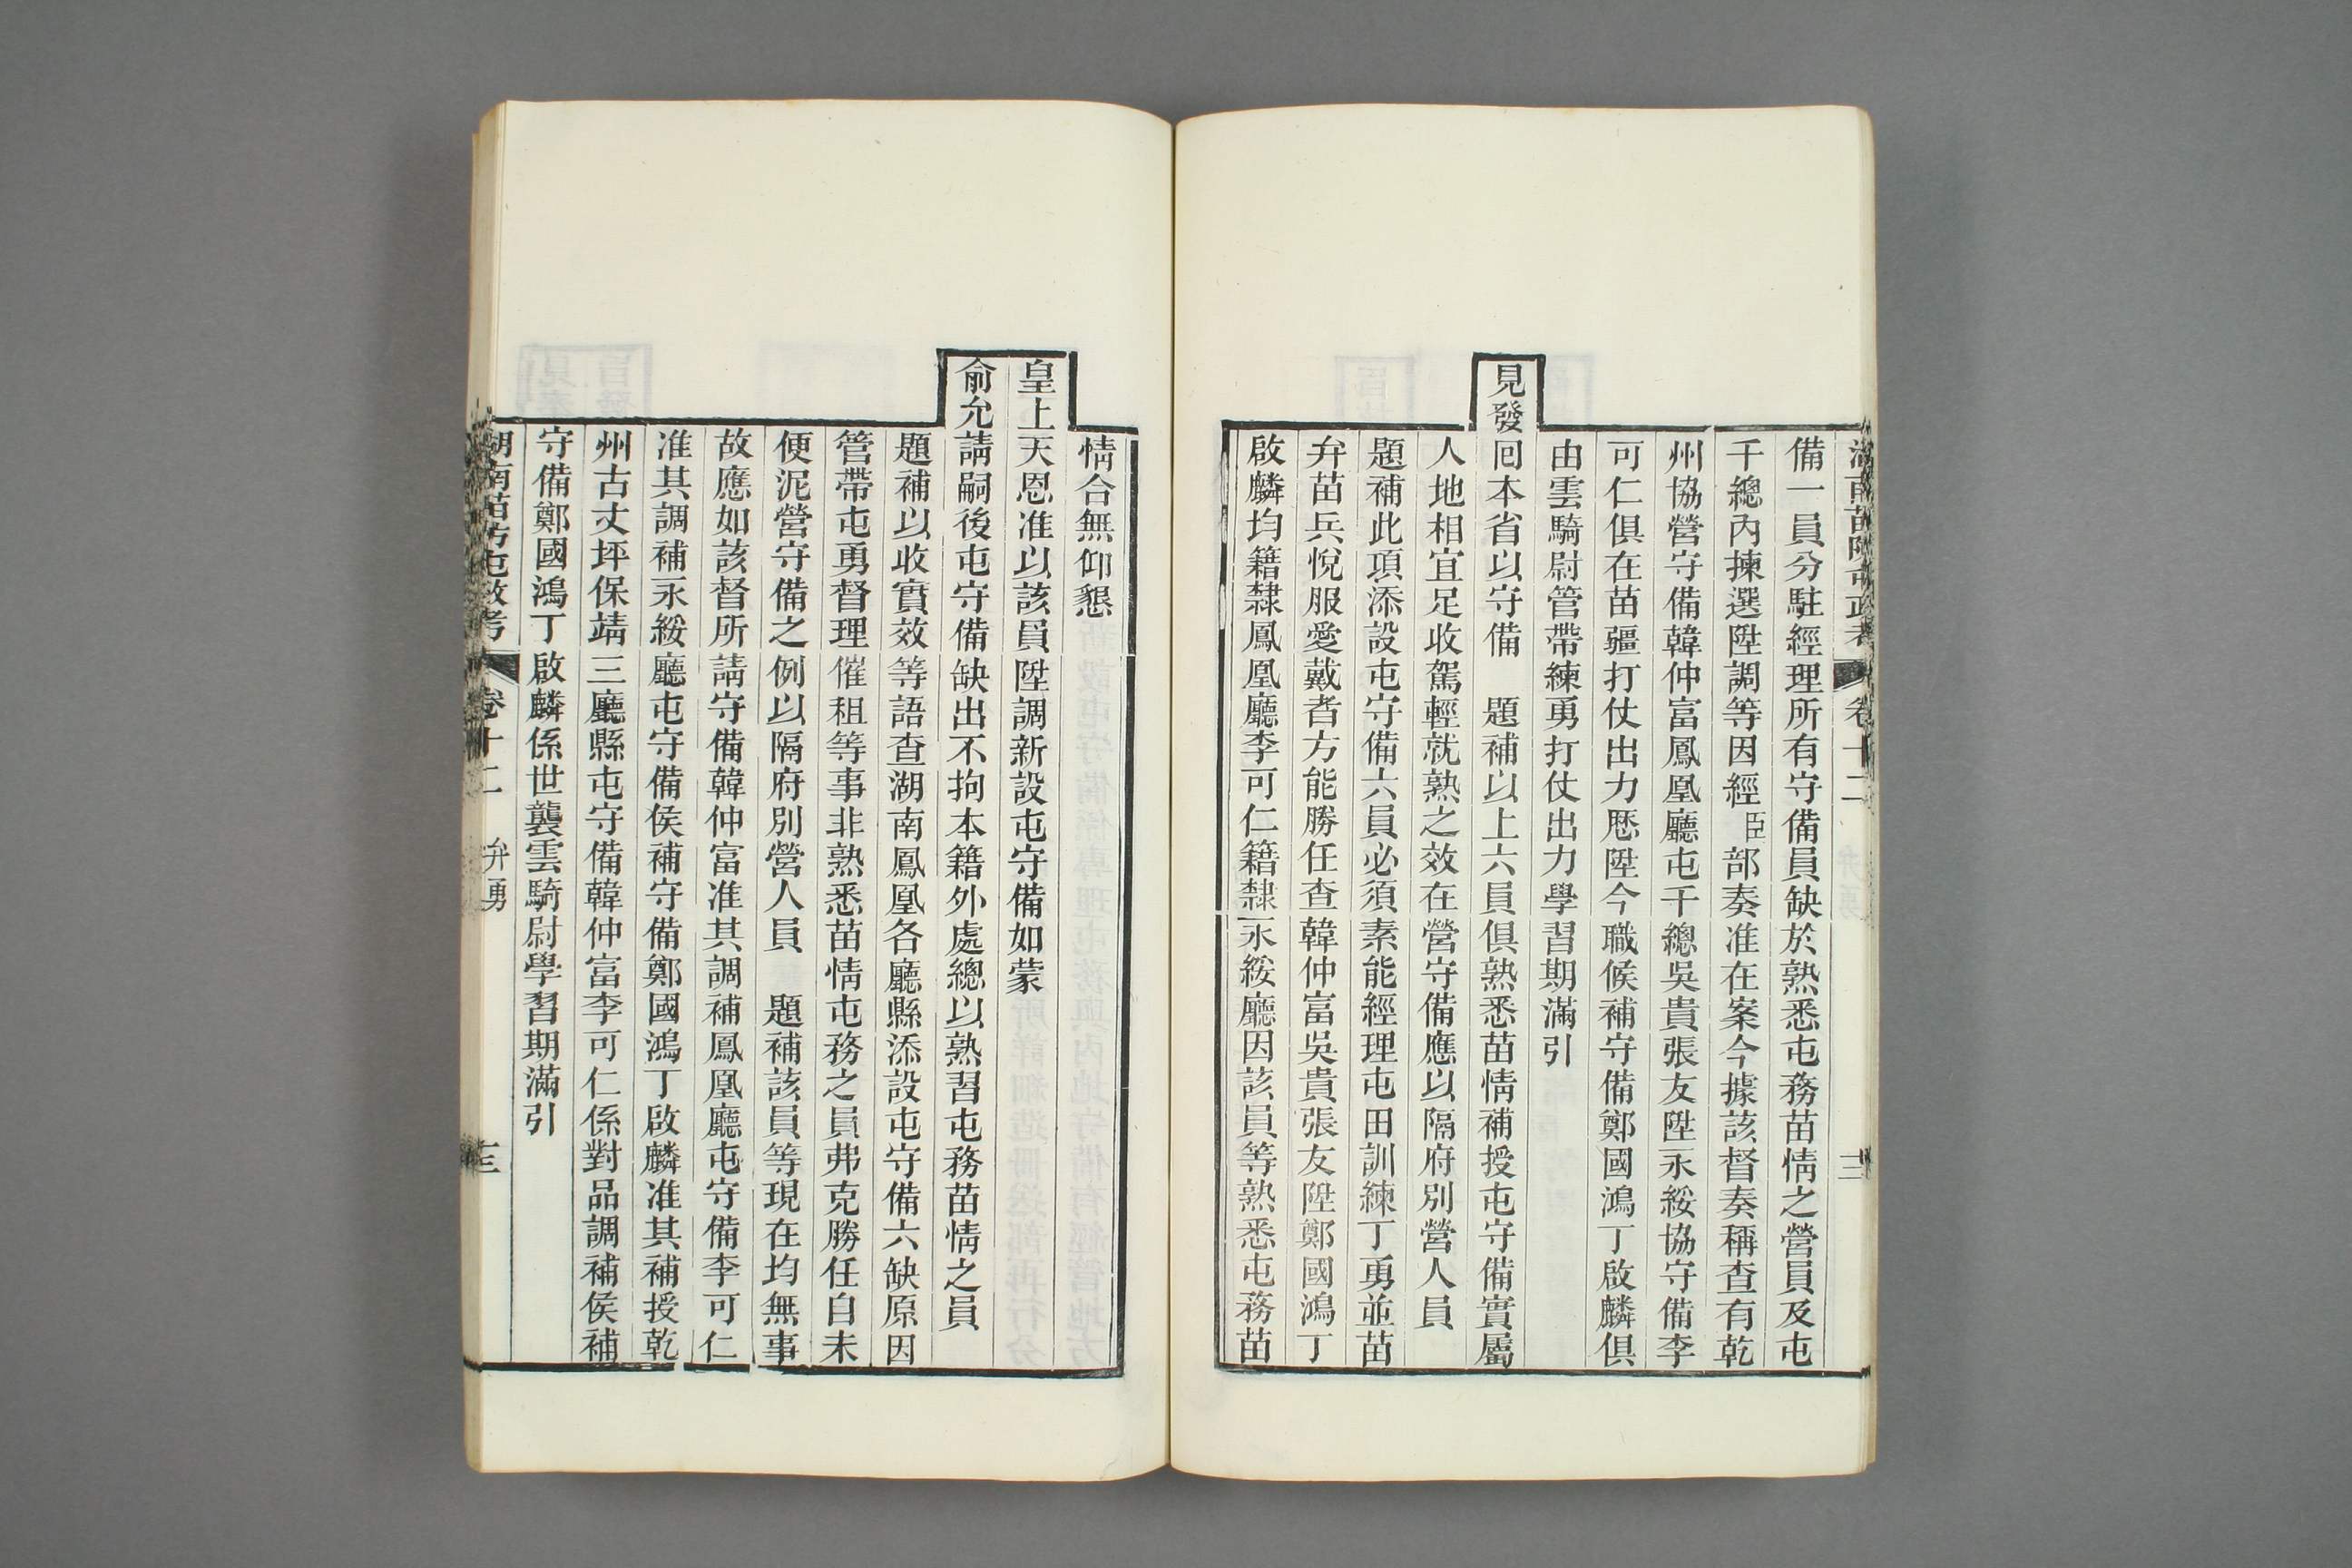 湖南苗防屯政考 卷十二 二
備一員分駐經理所有守備員缺於熟悉屯務苗情之營員及屯
千總內揀選陞調等因經臣部奏准在案今據該督奏稱查有乾
州協營守備韓仲富鳳凰廳屯千總吳貴張友陞永綏協守備李
可仁俱在苗疆打仗出力歷陞今職候補守備鄭國鴻丁啟麟俱
由雲騎尉管帶練勇打仗出力學習期滿引
見發回本省以守備 題補以上六員俱熟悉苗情補授屯守備實屬
人地相宜足收駕輕就熟之效在營守備應以隔府別營人員
題補此項添設屯守備六員必須素能經理屯田訓練丁勇並苗
弁苗兵悅服愛戴者方能勝任查韓仲富吳貴張友陞鄭國鴻丁
啟麟均籍隸鳳凰廳李可仁籍隸永綏廳因該員等熟悉屯務苗
情合無仰懇
皇上天恩准以該員陞調新設屯守備如蒙
俞允請嗣後屯守備缺出不拘本籍外處總以熟習屯務苗情之員
題補以收實效等語查湖南鳳凰各廳縣添設屯守備六缺原因
管帶屯勇督理催租等事非熟悉苗情屯務之員弗克勝任自未
便泥營守備之例以隔府別營人員 題補該員等現在均無事
故應如該督所請守備韓仲富准其調補鳳凰廳屯守備李可仁
准其調補永綏廳屯守備侯補守備鄭國鴻丁啟麟准其補授乾
州古丈坪保靖三廳縣屯守備韓仲富李可仁係對品調補侯補
守備鄭國鴻丁啟麟係世襲雲騎尉學習期滿引
湖南苗防屯政考 卷十二 弁勇 三